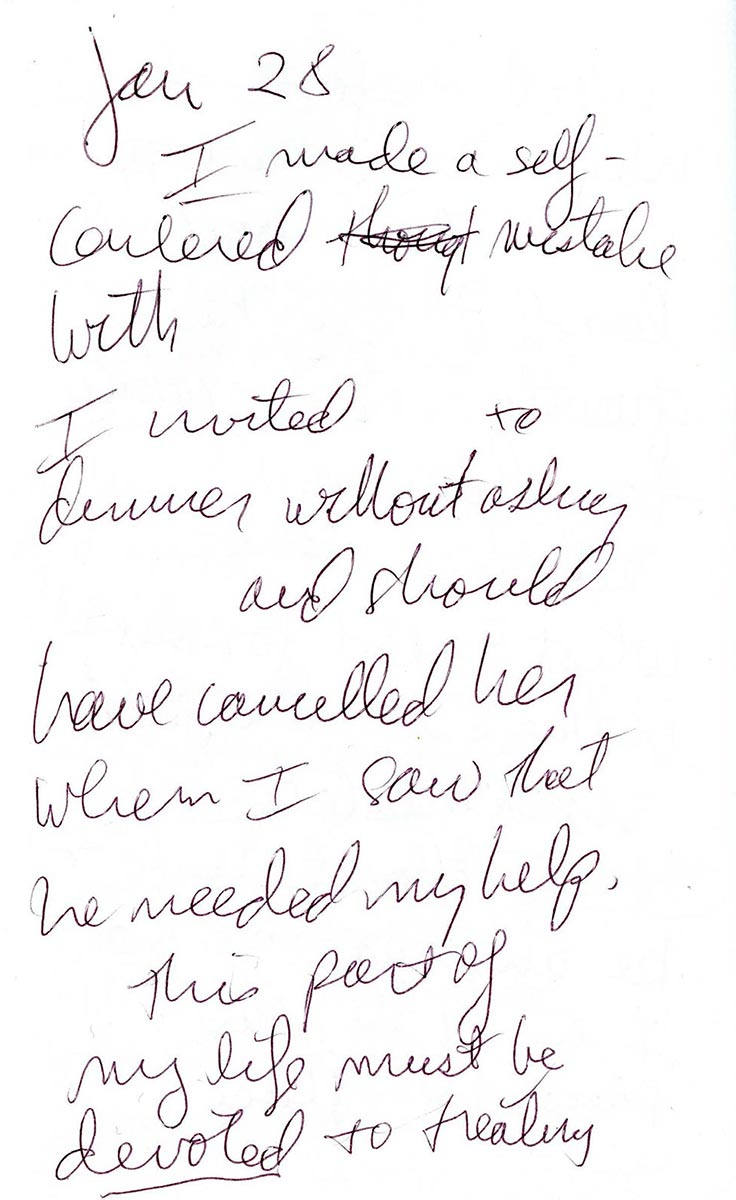 Jan 28
I made a self-
centered thought mistake
with
I invited to
dinner without asking
and should
have cancelled her
when I saw that
he needed my help.
This part of
my life must be
devoted to treating